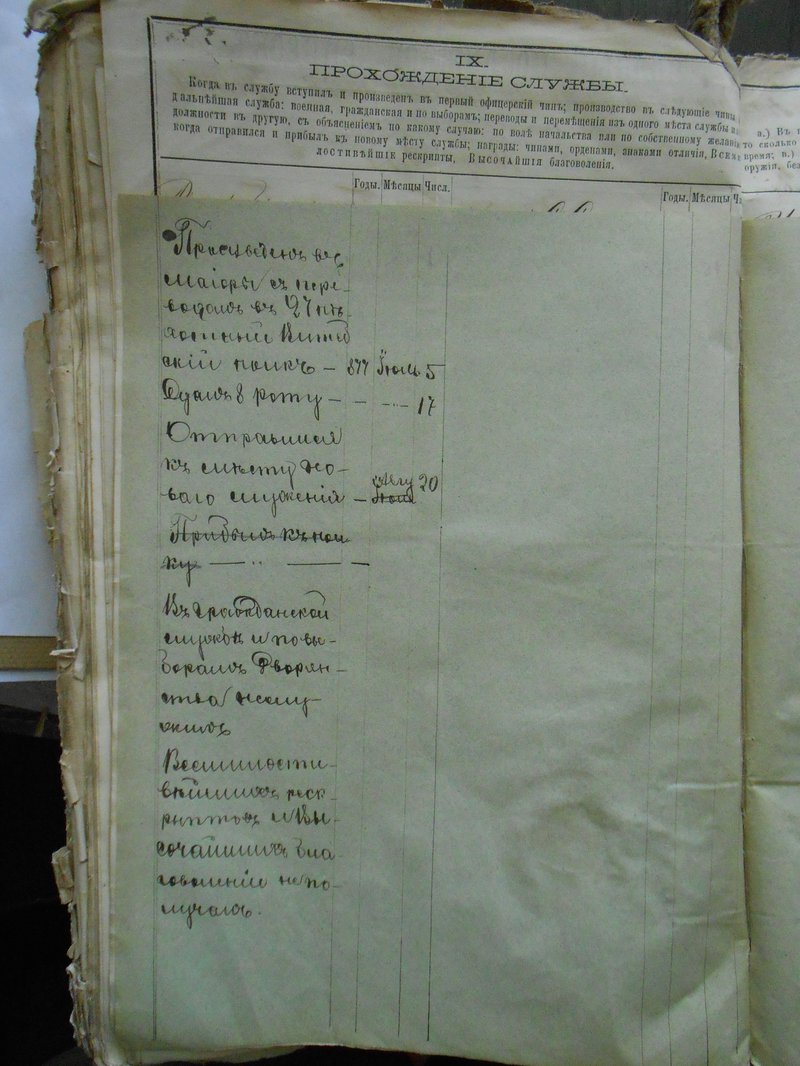 IX.
ПРОХОЖДЕНІЕ СЛУЖБЫ.
Когда въ службу вступилъ и произведенъ въ первый офицерскій чинъ; производство въ слѣдующіе чины
дальнѣйшая служба: военная, гражданская и по выборамъ; переводы и перемѣщенія изъ одного мѣста службы
должности въ другую, съ объясненіемъ по какому случаю: по волѣ начальства или по собственному желанію
когда отправился и прибылъ къ новому мѣсту службы; награды: чинами, орденами, знаками отличія, Всем
лостивѣйшіе рескрипты, Высочайшія благоволенія.
Годы. Мѣсяцы Числ. Годы. Мѣсяцы Чи
а.) Въ
то сколько
время; в.)
оружія, без
Произведенъ въ
маіоры съ пере-
водомъ въ 27 пѣ
хотный Витеб
скій полкъ — 877 Іюль 5
Сдалъ 8 роту — — — 17
Отправился
къ мѣсту но-
ваго служенія — Авгу Іюля 20
Прибылъ къ пол
ку — — —
Въ гражданской
службѣ и по вы-
борамъ Дворян-
ства не слу-
жилъ
Всемилости-
вѣйшихъ реск-
риптовъ и Вы-
сочайшихъ бла-
говоленій не по-
лучалъ.